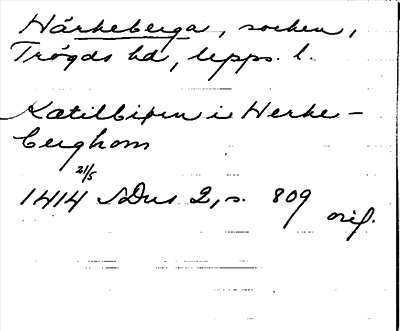 Härkeberga, socken,
Trögds hd, Upps. l.
Katilbiþen i Herke-
berghom
21/5
1414 SDns 2, s. 809
orig.